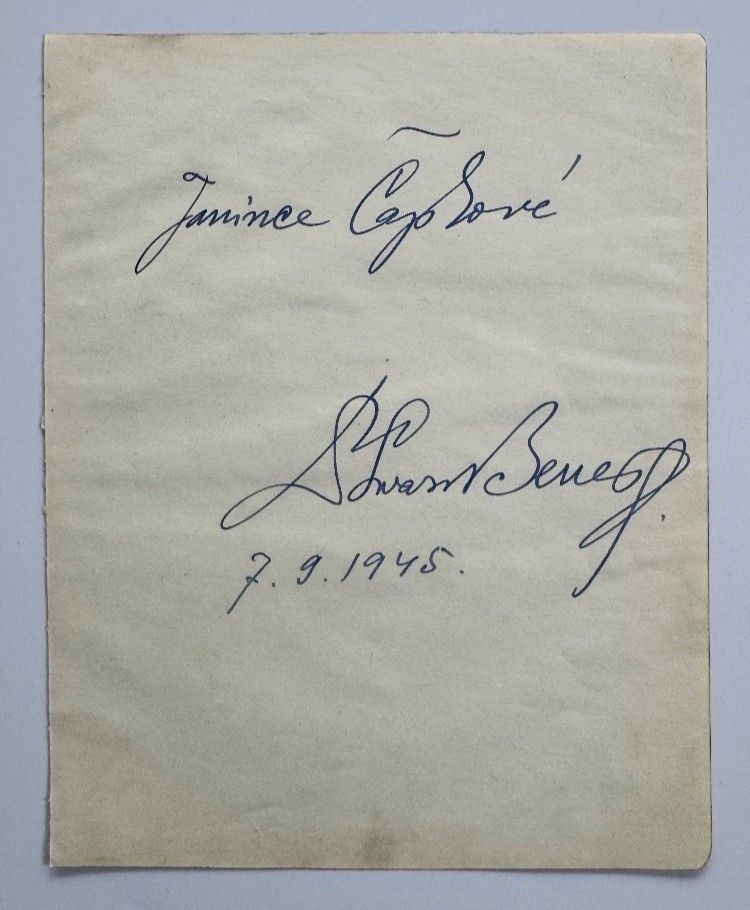 Janince Čápkové
Edvard Beneš.
7. 9. 1945.